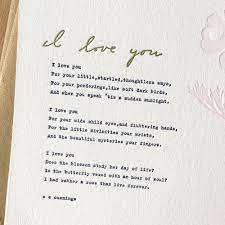 I love you
I love you
For your little,startled,thoughtless ways,
For your ponderings,like soft dark birds,
And when you speak 'tis a sudden sunlight.
I love you
For your wide child eyes,and fluttering hands,
For the little divinities your wrists,
And the beautiful mysteries your fingers.
I love you
Does the blossom study her day of life?
Is the butterfly vexed with an hour of soul?
I had rather a rose than live forever.
e e cummings